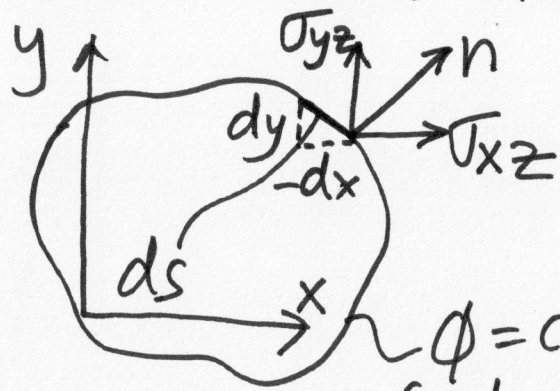 y
σyz
n
dy
σxz
-dx
ds
x
ϕ =